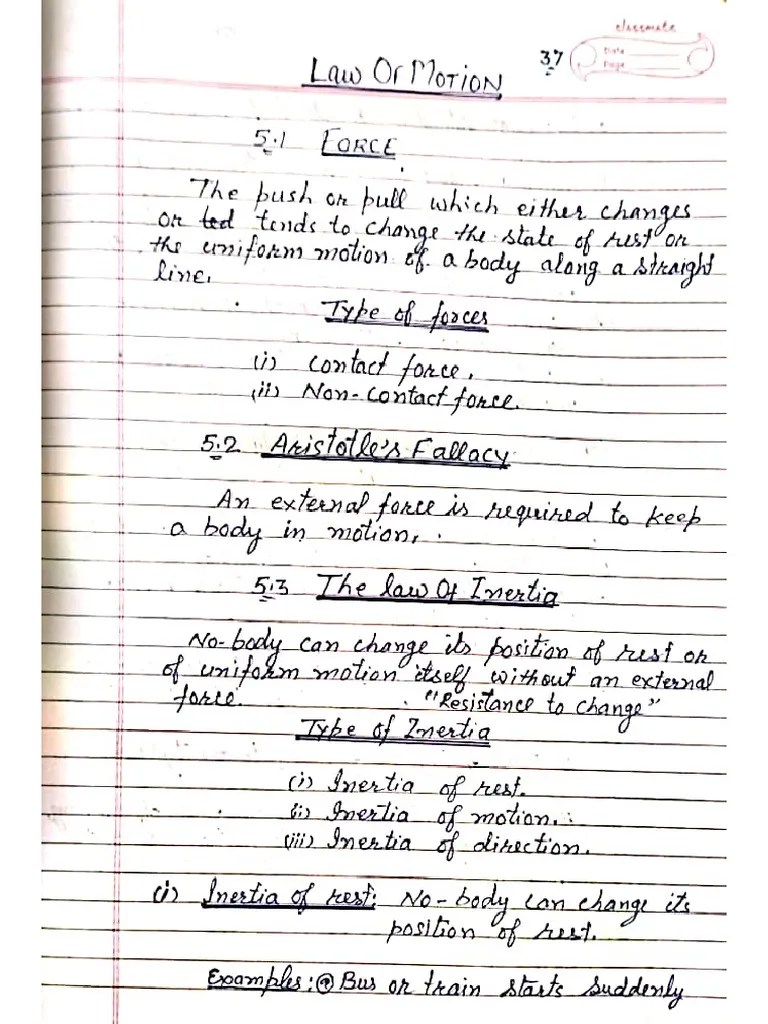 classmate
37
Date
Page
Law Of Motion
5.1 Force
The push or pull which either changes
or ted tends to change the state of rest or
the uniform motion of a body along a straight
line.
Type of forces
(i) Contact force.
(ii) Non-Contact force.
5.2 Aristotle's Fallacy
An external force is required to keep
a body in motion.
5.3 The law Of Inertia
No-body can change its position of rest or
of uniform motion itself without an external
force. "Resistance to change"
Type of Inertia
(i) Inertia of rest.
(ii) Inertia of motion.
(iii) Inertia of direction.
(i) Inertia of rest: No-body can change its
position of rest.
Examples: @ Bus or train starts suddenly